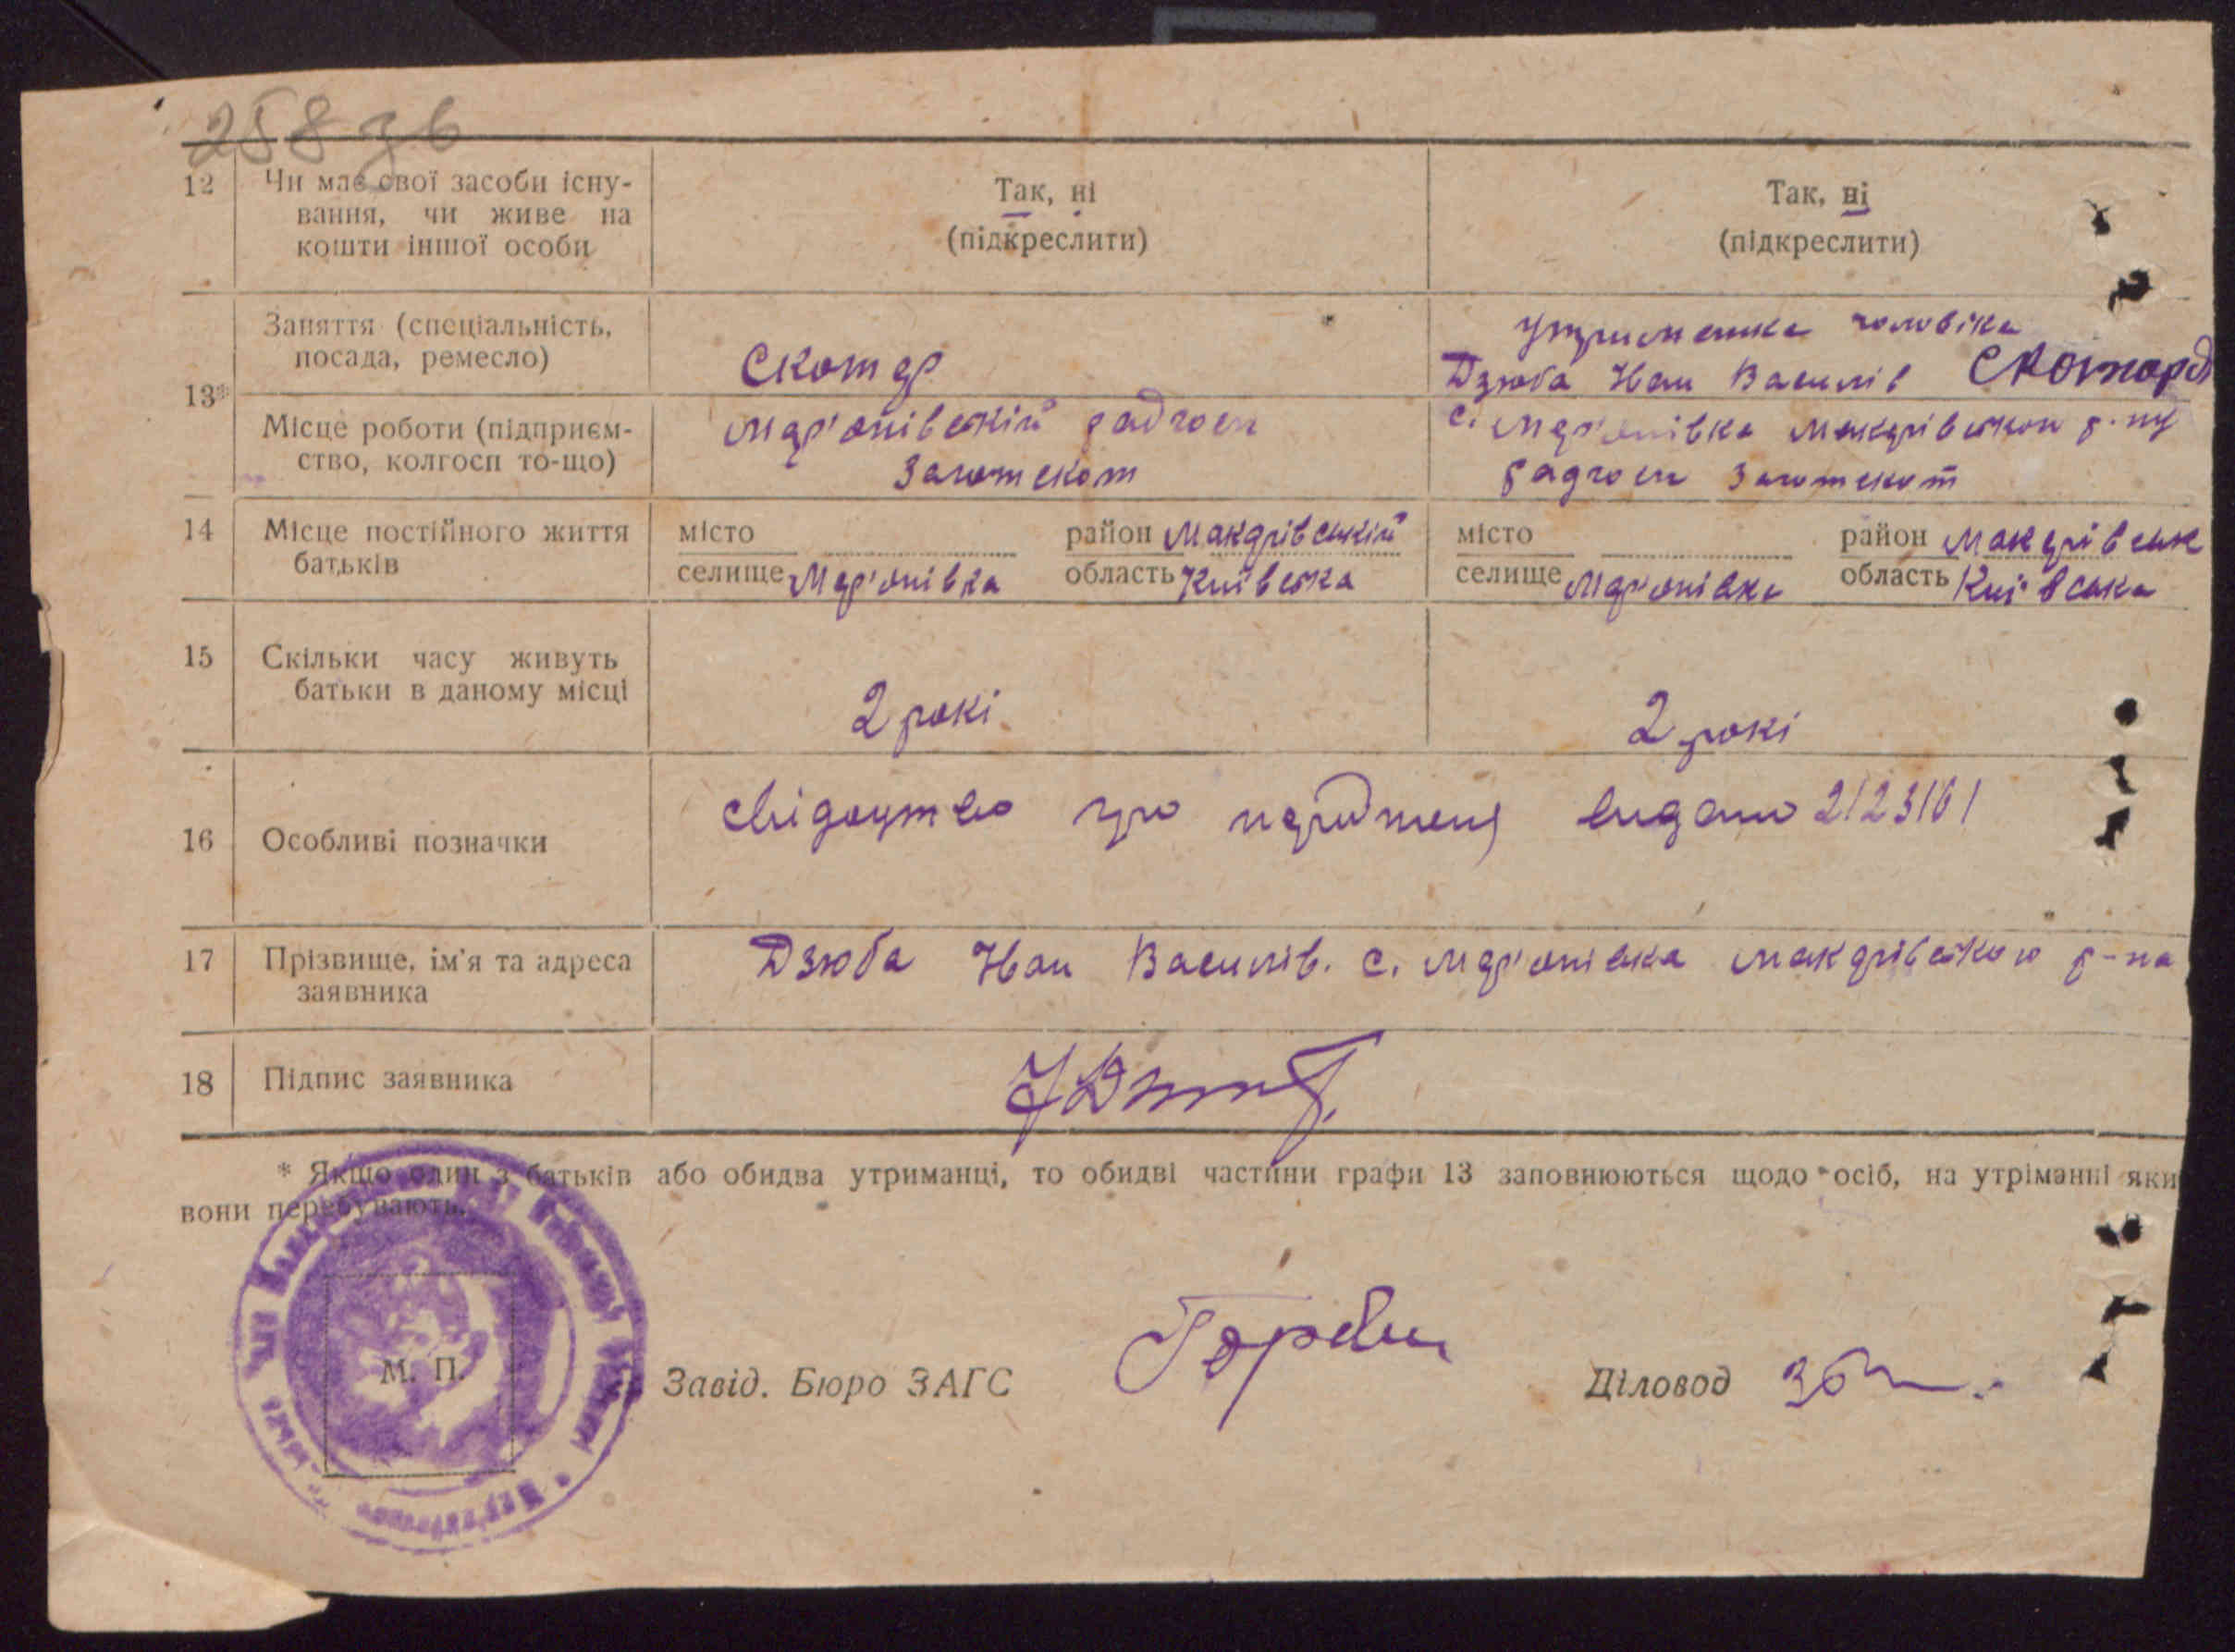 258 зв
12 Чи має свої засоби існу-
вання, чи живе на
кошти іншої особи
Так, ні
(підкреслити)
Так, ні
(підкреслити)
13*
Заняття (спеціальність,
посада, ремесло)
Скотар
утриманка чоловіка
Дзюба Іван Василів Скотар
Місце роботи (підприєм-
ство, колгосп то-що)
Мар'янівский радгосп
Заготскот
с. Мар'янівка Макарівского р-ну
радгосп Заготскот
14 Місце постійного життя
батьків
місто район Макарівский
селище Мар'янівка область Київска
місто район Макарівск
селище Мар'янівка область Київска
15 Скільки часу живуть
батьки в даному місці
2 рокі
2 рокі
16 Особливі позначки
свідоцтво про народженя видано 212316
17 Прізвище, ім'я та адреса
заявника
Дзюба Іван Василів. с. Мар'янівка Макарівского р-на
18 Підпис заявника
* Якщо один з батьків або обидва утриманці, то обидві частини графи 13 заповнюються щодо осіб, на утріманні яки
вони перебувають.
М. П.
Завід. Бюро ЗАГС
Діловод